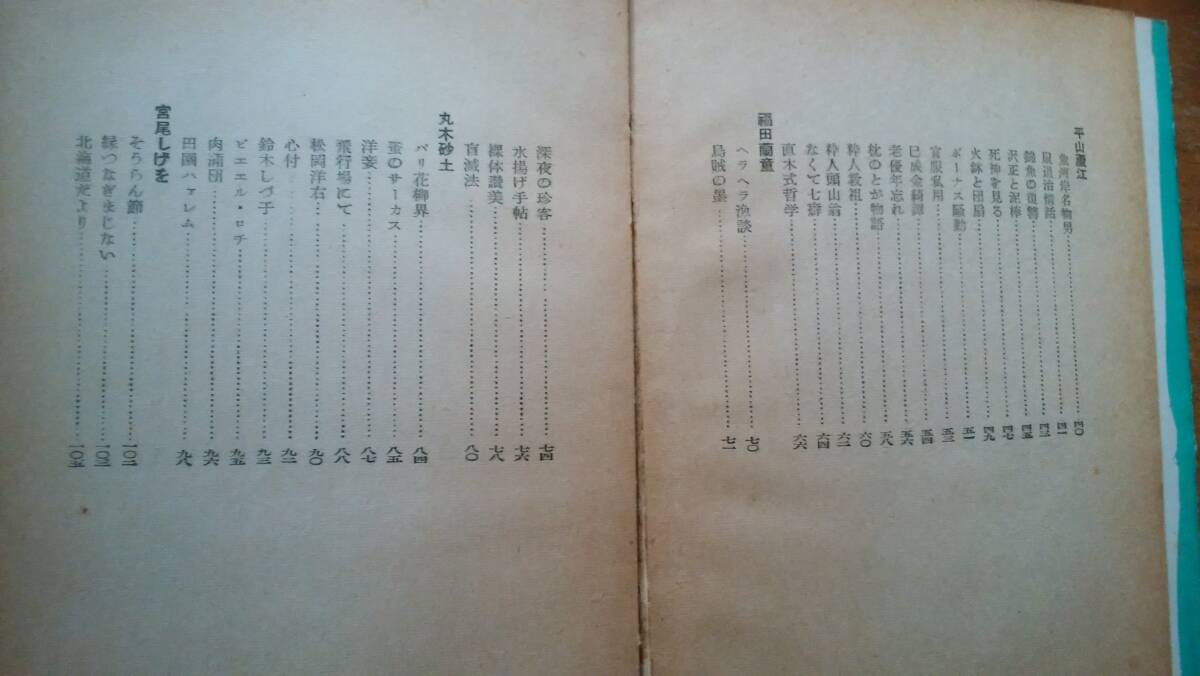 平山蘆江
魚河岸名物男…………四〇
風道治情話…………四一
錦魚の復讐…………四二
沢正と泥棒…………四五
死神を見る…………四七
火鉢と団扇…………四九
ボーナス騒動…………五一
官服私用…………五三
巳成金綺譚…………五四
老優年忘れ…………五六
枕のとが物語…………五八
粋人教祖…………六〇
粋人頭山翁…………六二
なくて七癖…………六四
直木式哲学…………六六
福田蘭童
ヘラヘラ漁談…………七〇
烏賊の墨…………七一
深夜の珍客…………七四
水揚げ手帖…………七六
裸体讃美…………七八
盲滅法…………八〇
丸木砂土
パリ花柳界…………八四
蚤のサーカス…………八五
洋妾…………八七
飛行場にて…………八八
松岡洋右…………九〇
心付…………九一
鈴木しづ子…………九三
ピエエル・ロチ…………九五
肉蒲団…………九六
田園ハァレム…………九八
宮尾しげを
そららん節…………一〇二
縁つなぎまじない…………一〇三
北海道だより…………一〇五